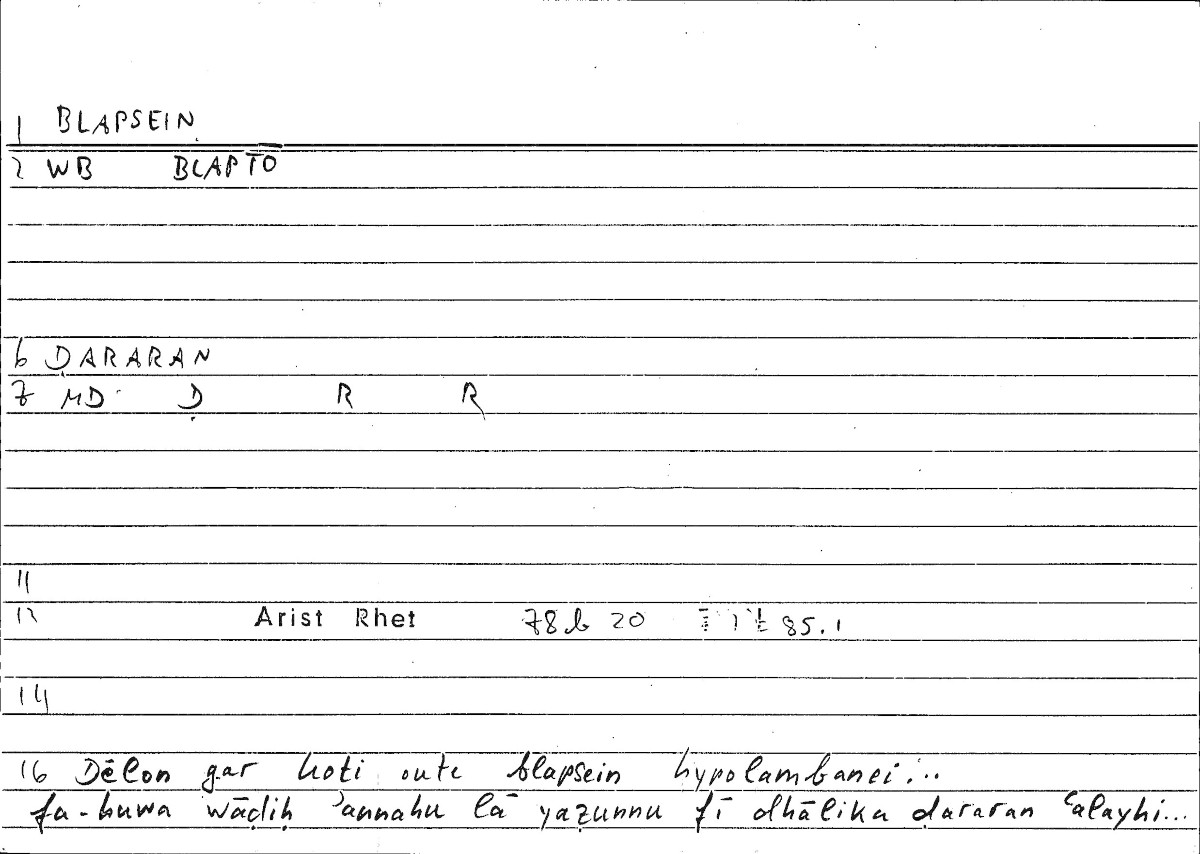 1 BLAPSEIN
2 WB BLAPTŌ
6 ḌARARAN
7 MD Ḍ R R
11
12 Arist Rhet 78b 20 85.1
14
16 Dēlon gar hoti oute blapsein hypolambanei...
fa-huwa wāḍiḥ ʾannahu lā yaẓunnu fī dhālika ḍararan ʿalayhi...